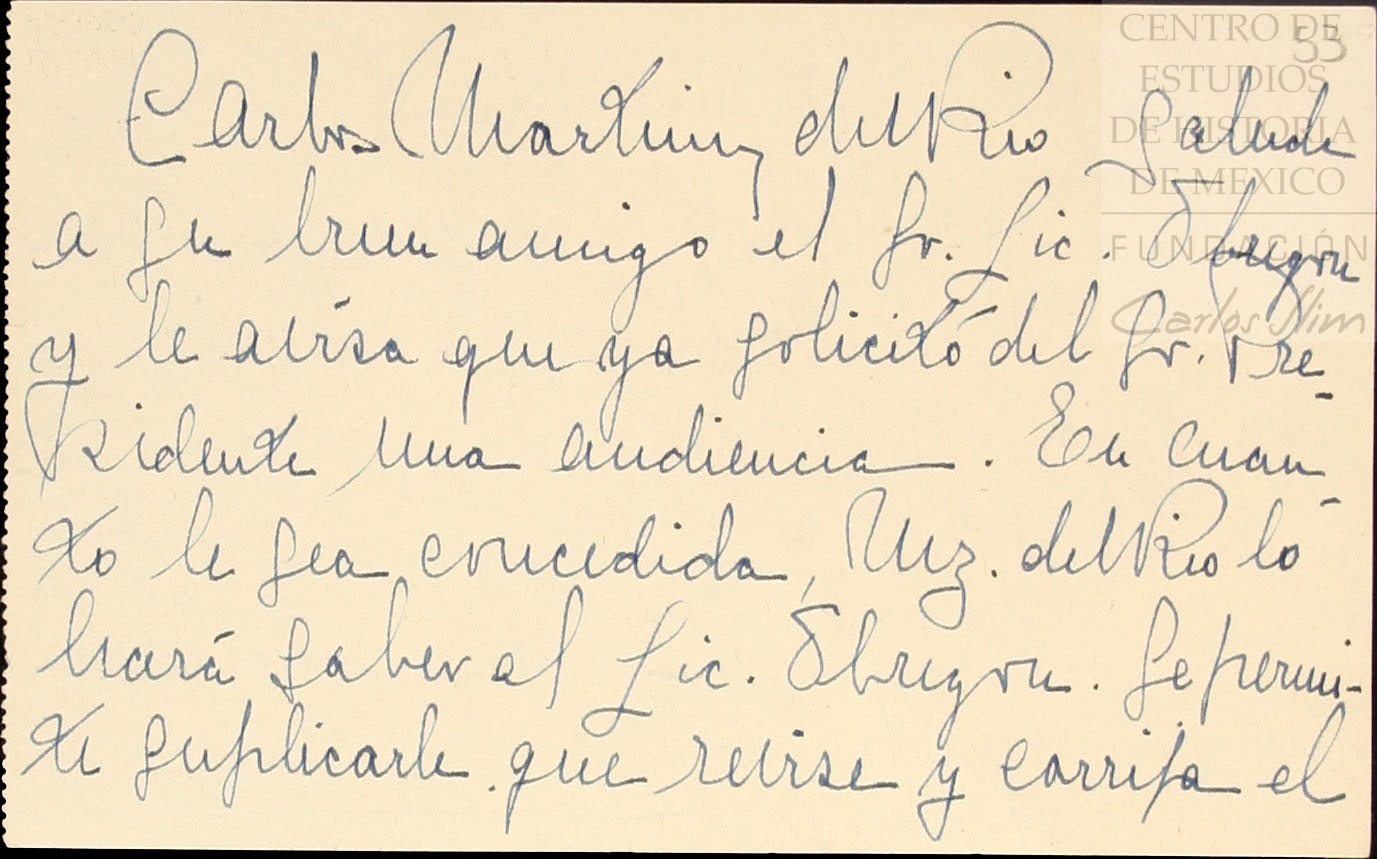 53
CENTRO DE
ESTUDIOS
DE HISTORIA
DE MEXICO
FUNDACIÓN
Carlos Slim
Carlos Martinez del Rio saluda
a su buen amigo el Sr. Lic. Obregon
y le avisa que ya solicitó del Sr. Pre-
sidente una audiencia. En cuan-
to le sea concedida, Mz. del Rio lo
hará saber al Lic. Obregon. Se permi-
te suplicarle que revise y corrija el